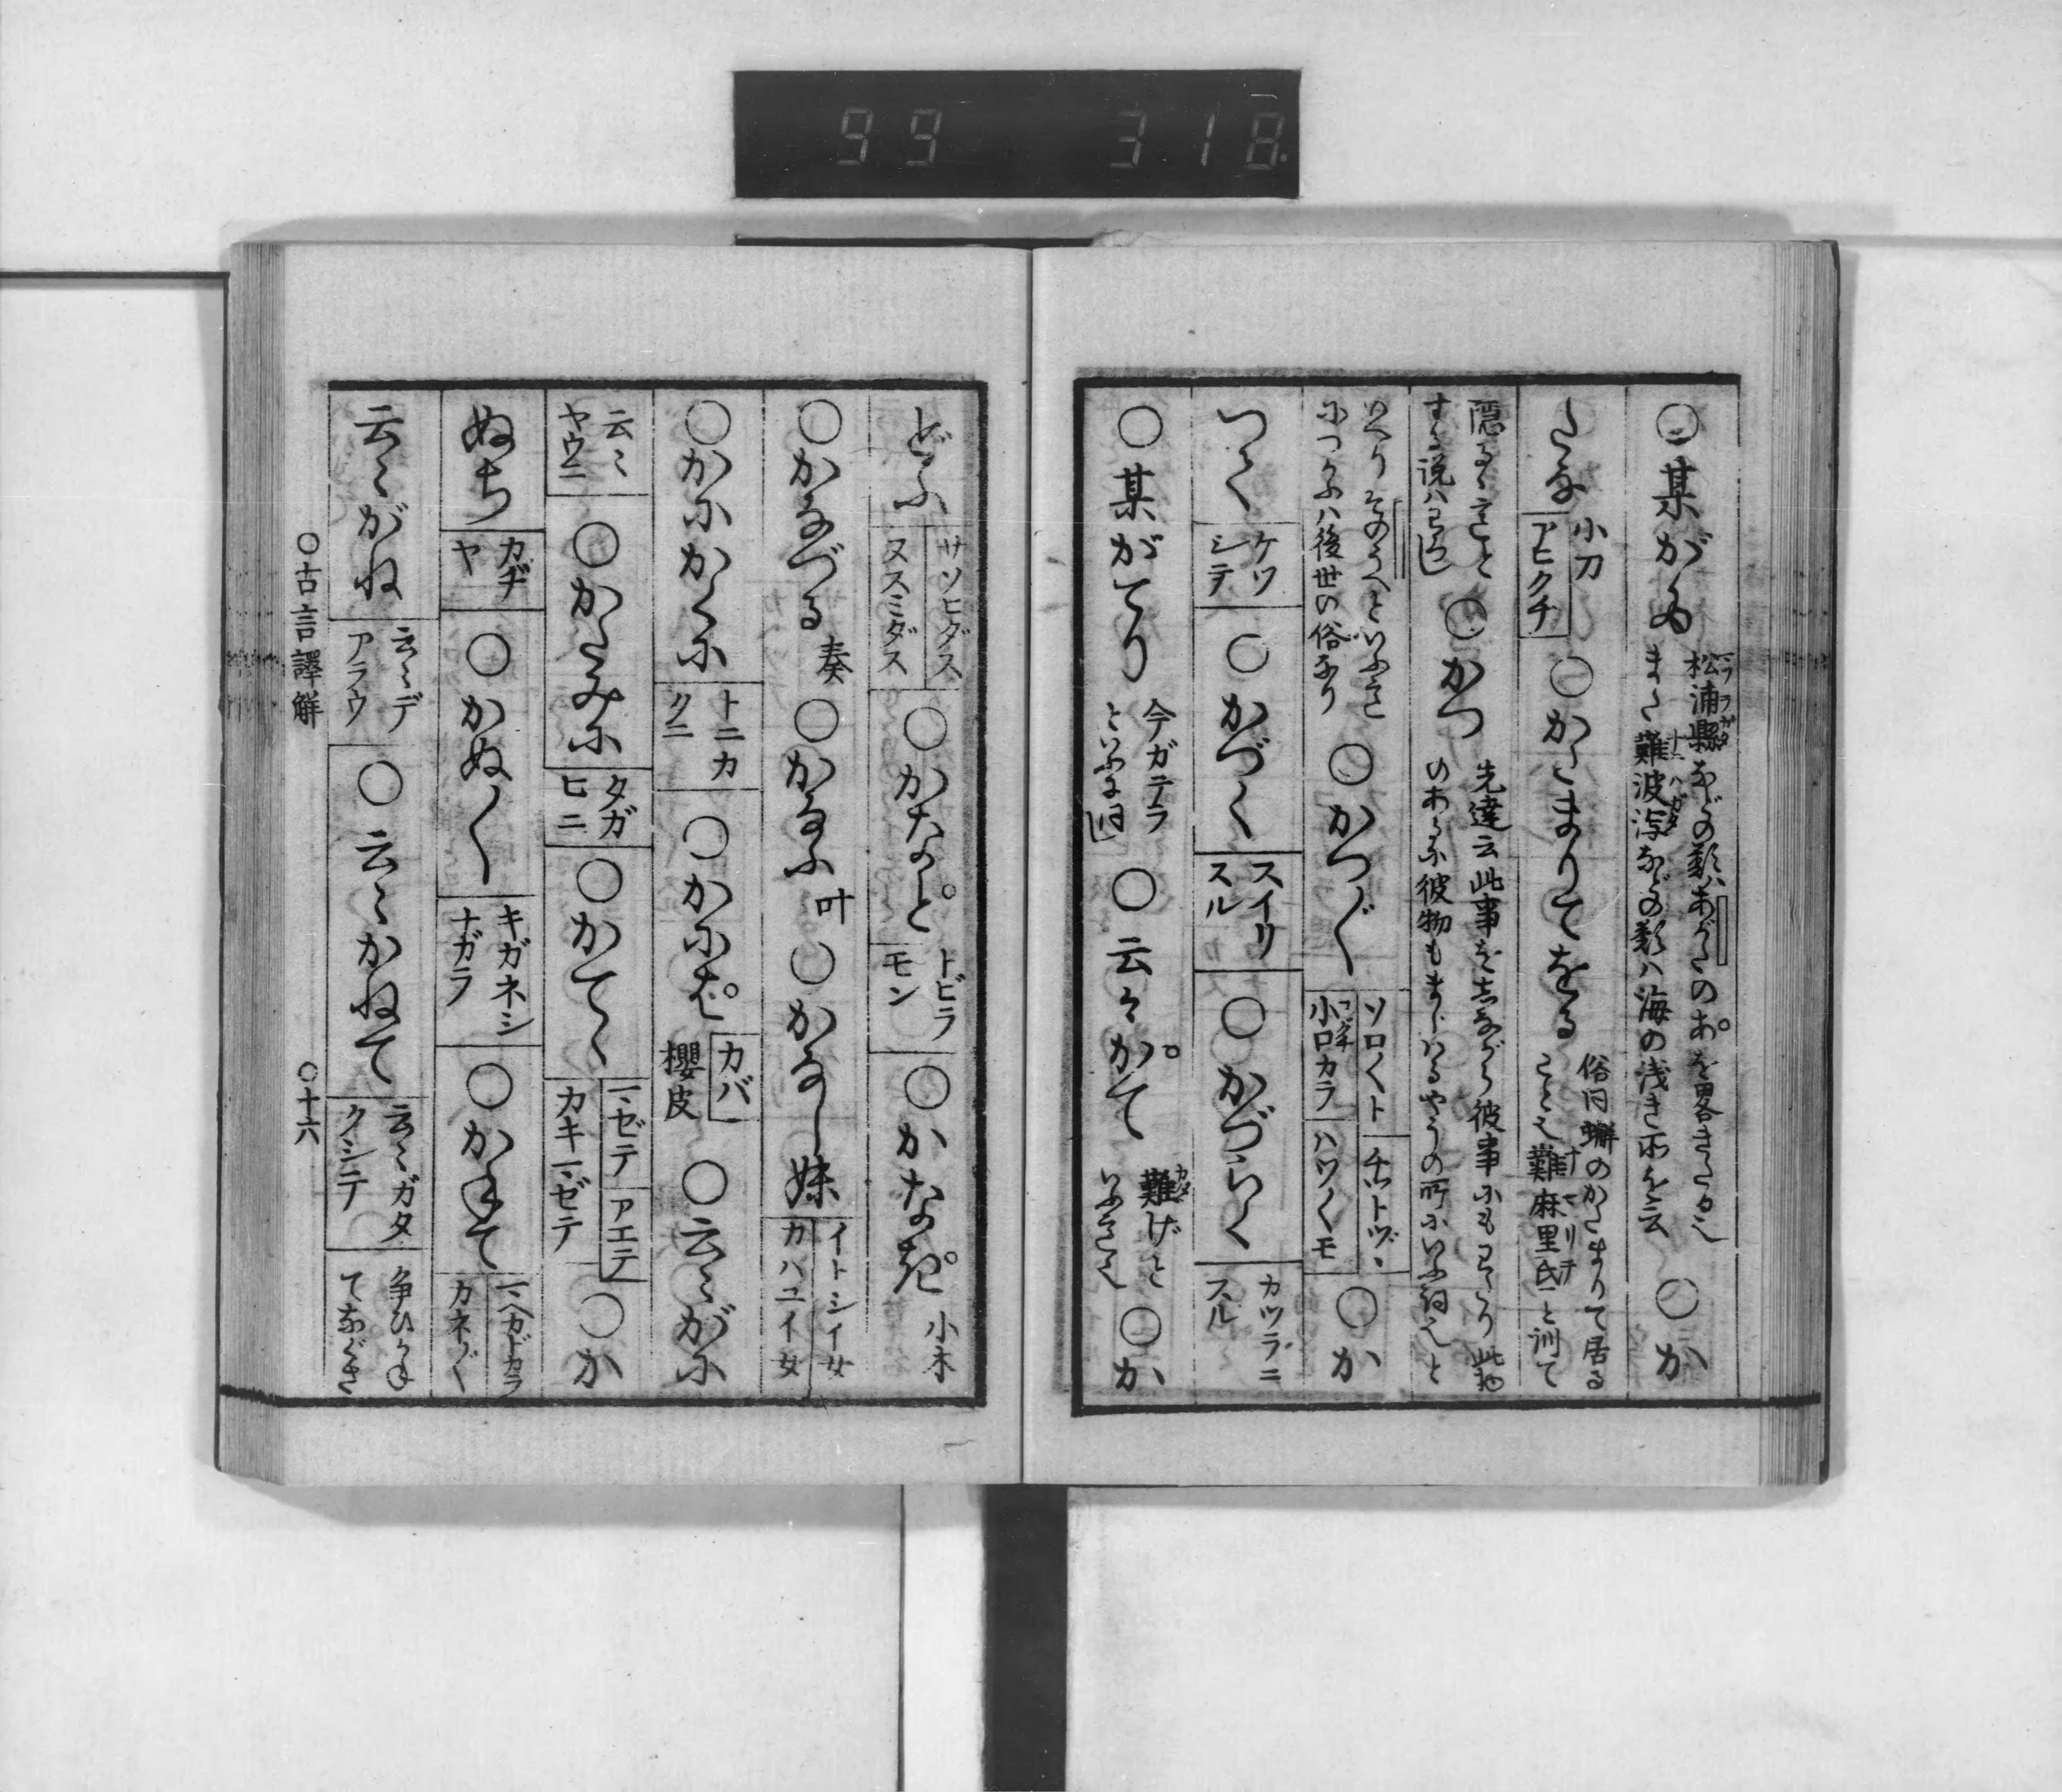 99 318
○某がゐ 松浦縣などの類ハあがたのあを畧きたる也 また難波潟などの類ハ海の浅き所を云 ○か
たな 小刀 アヒクチ ○かたまりてをる 俗ニ同 蟹のかたまりて居る ことを 難麻里弖と訓て
隠るゝこと とする説ハわろし ○かつ 先達云此事を志ながら彼事にもわたり此物 のあるに彼物もまじハるやうの所にいふ詞也と
いへり そのうへといふこと につかふハ後世の俗なり ○かつ〴〵 ソロ〳〵ト 小口カラ ハツ〳〵モ ○か
つ〳〵 ケツシテ ○かづく スイリスル ○かづらく カツラニスル
○某がてり 今ガテラ といふに同じ ○云々がて 難げと いふこと也 ○か
どふ サソヒダス ススミダス ○かなと トビラ モン ○かなき 小木
○かなづる 奏 ○かなふ 叶 ○かなし妹 イトシイ女 カハユイ女
○かにかくに トニカクニ ○かには カバ 櫻皮 ○云〻がに
云〻ヤウニ ○かたみに タガヒニ ○かてゝ マゼテ アエテ カキマゼテ ○か
ぬち カヂヤ ○かぬ〳〵 キガネシナガラ ○かねて マヘカドカラ カネ〴〵
云〻がね 云〻デアラウ ○云〻かねて 云〻ガタクシテ 争ひかね てなどぞ
○古言譯解 ○十六